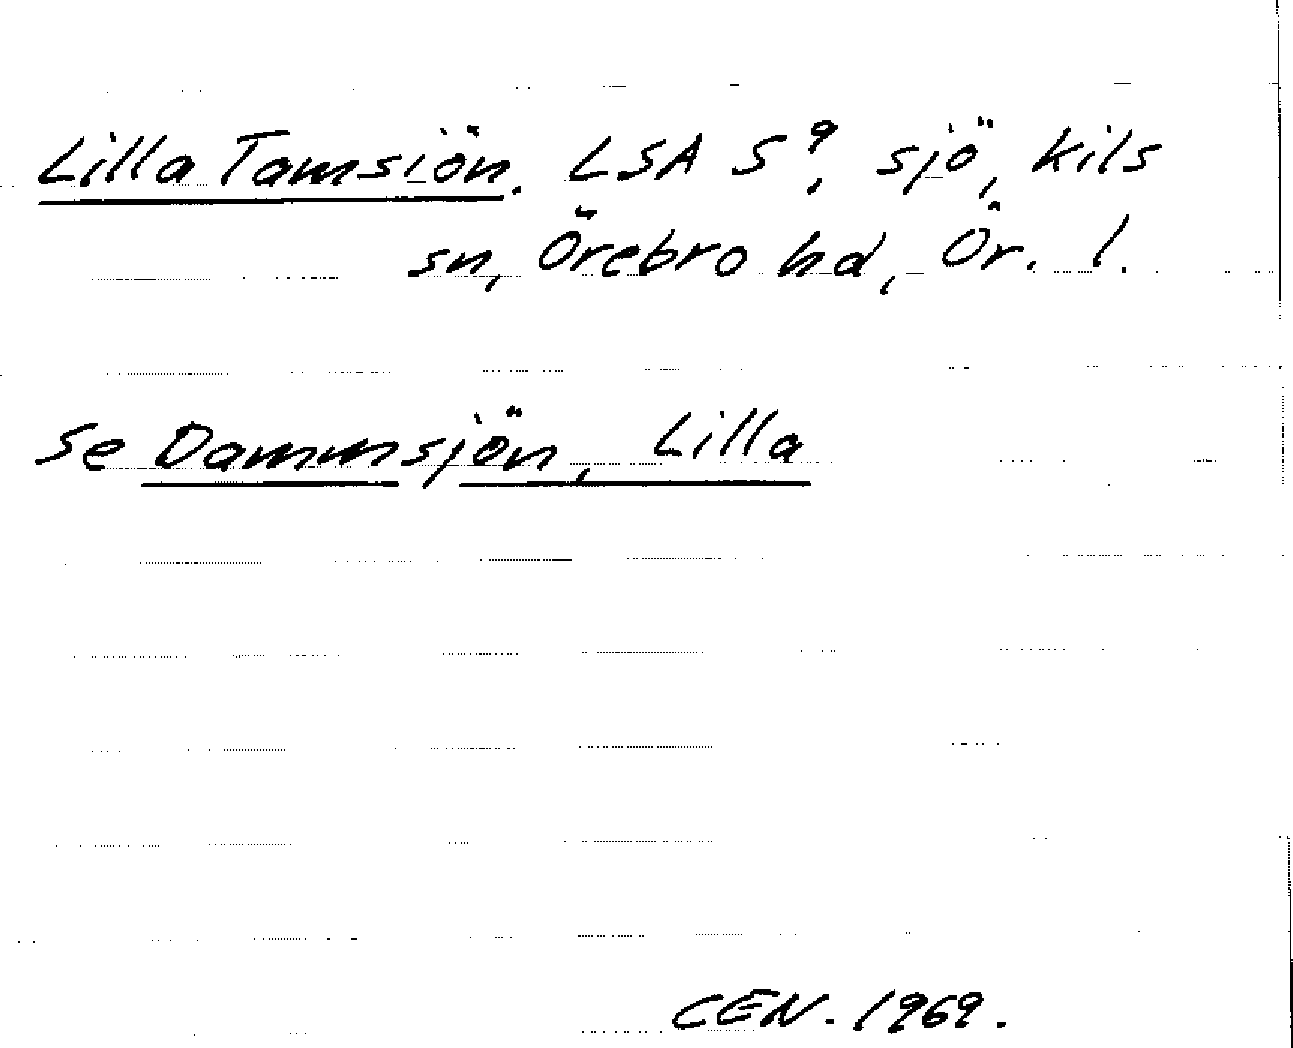 Lilla Tamsiön. LSA S⁹, sjö, Kils
sn, Örebro hd, Ör. l.
Se Dammsjön, Lilla
CEN. 1969.